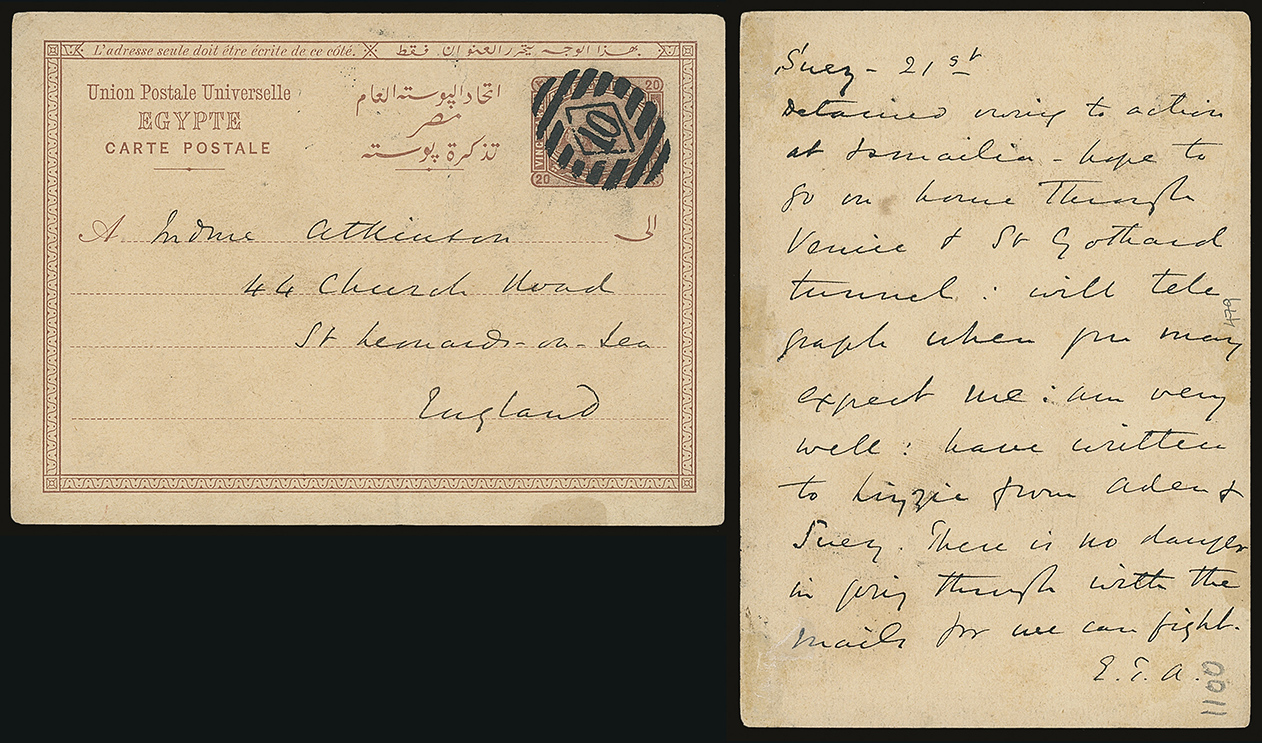 L'adresse seule doit être écrite de ce côté.
بهذا الوجه يتحرر العنوان فقط
Union Postale Universelle
EGYPTE
CARTE POSTALE
اتحاد البوسته العام
مصر
تذكرة بوسته
20
20
10
A Mdme Atkinson الى
44 Church Road
St Leonards-on-Sea
England
Suez - 21st
Detained owing to action
at Ismailia - hope to
go on home Through
Venice & St Gothard
tunnel : will tele
graph when you may
expect me : am very
well : have written
to Lizzie from Aden &
Suez. There is no danger
in going through with the
mails for we can fight.
E. T. A.
479